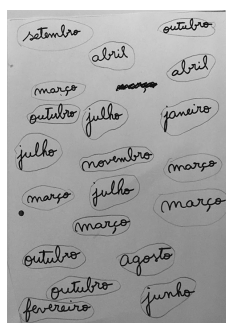 setembro
outubro
abril
abril
março
outubro
julho
janeiro
julho
novembro
março
março
julho
março
março
outubro
agosto
outubro
fevereiro
junho